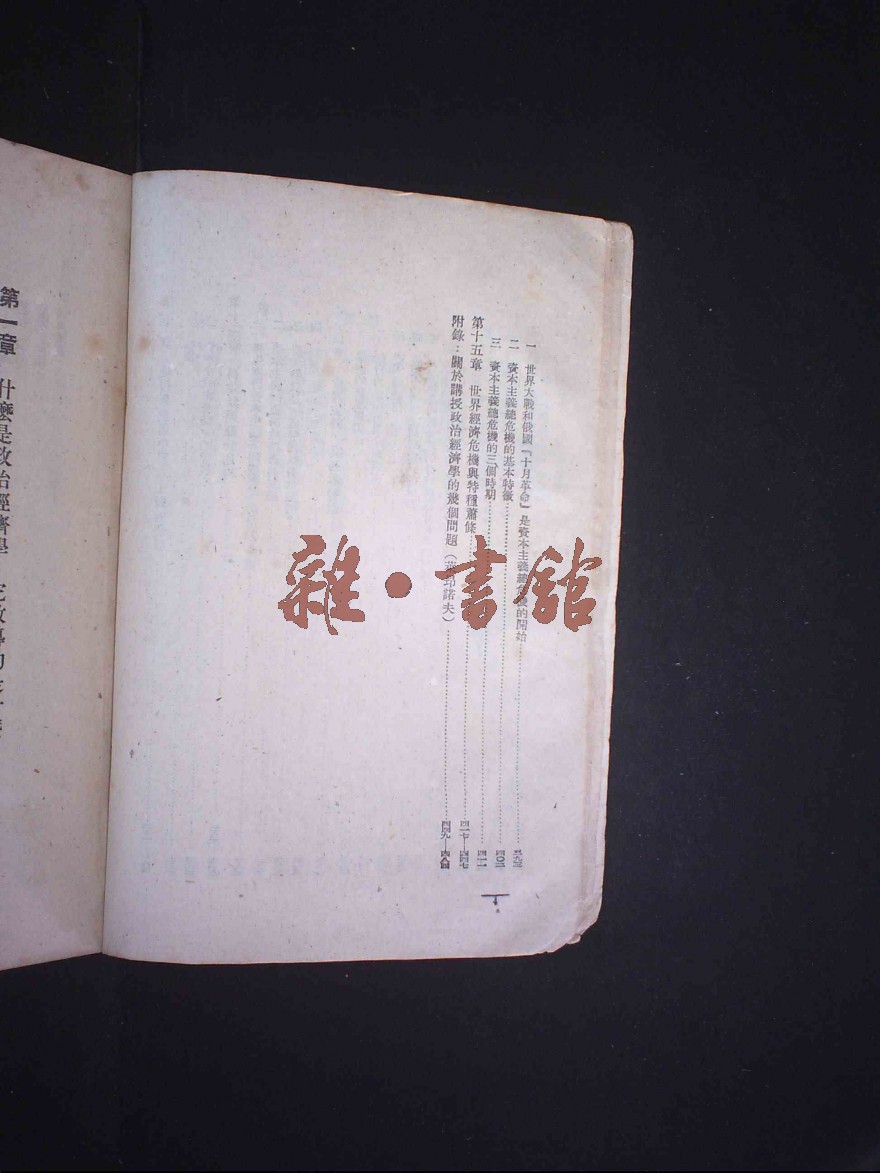 一 世界大戰和俄國『十月革命』是資本主義總危機的開始
二 資本主義總危機的基本特徵 四〇二
三 資本主義總危機的三個時期 四一一
第十五章 世界經濟危機與特種蕭條 四一七—四四七
附錄：關於講授政治經濟學的幾個問題 四四九—四八四
第一章 什麼是政治經濟學
雜·書館